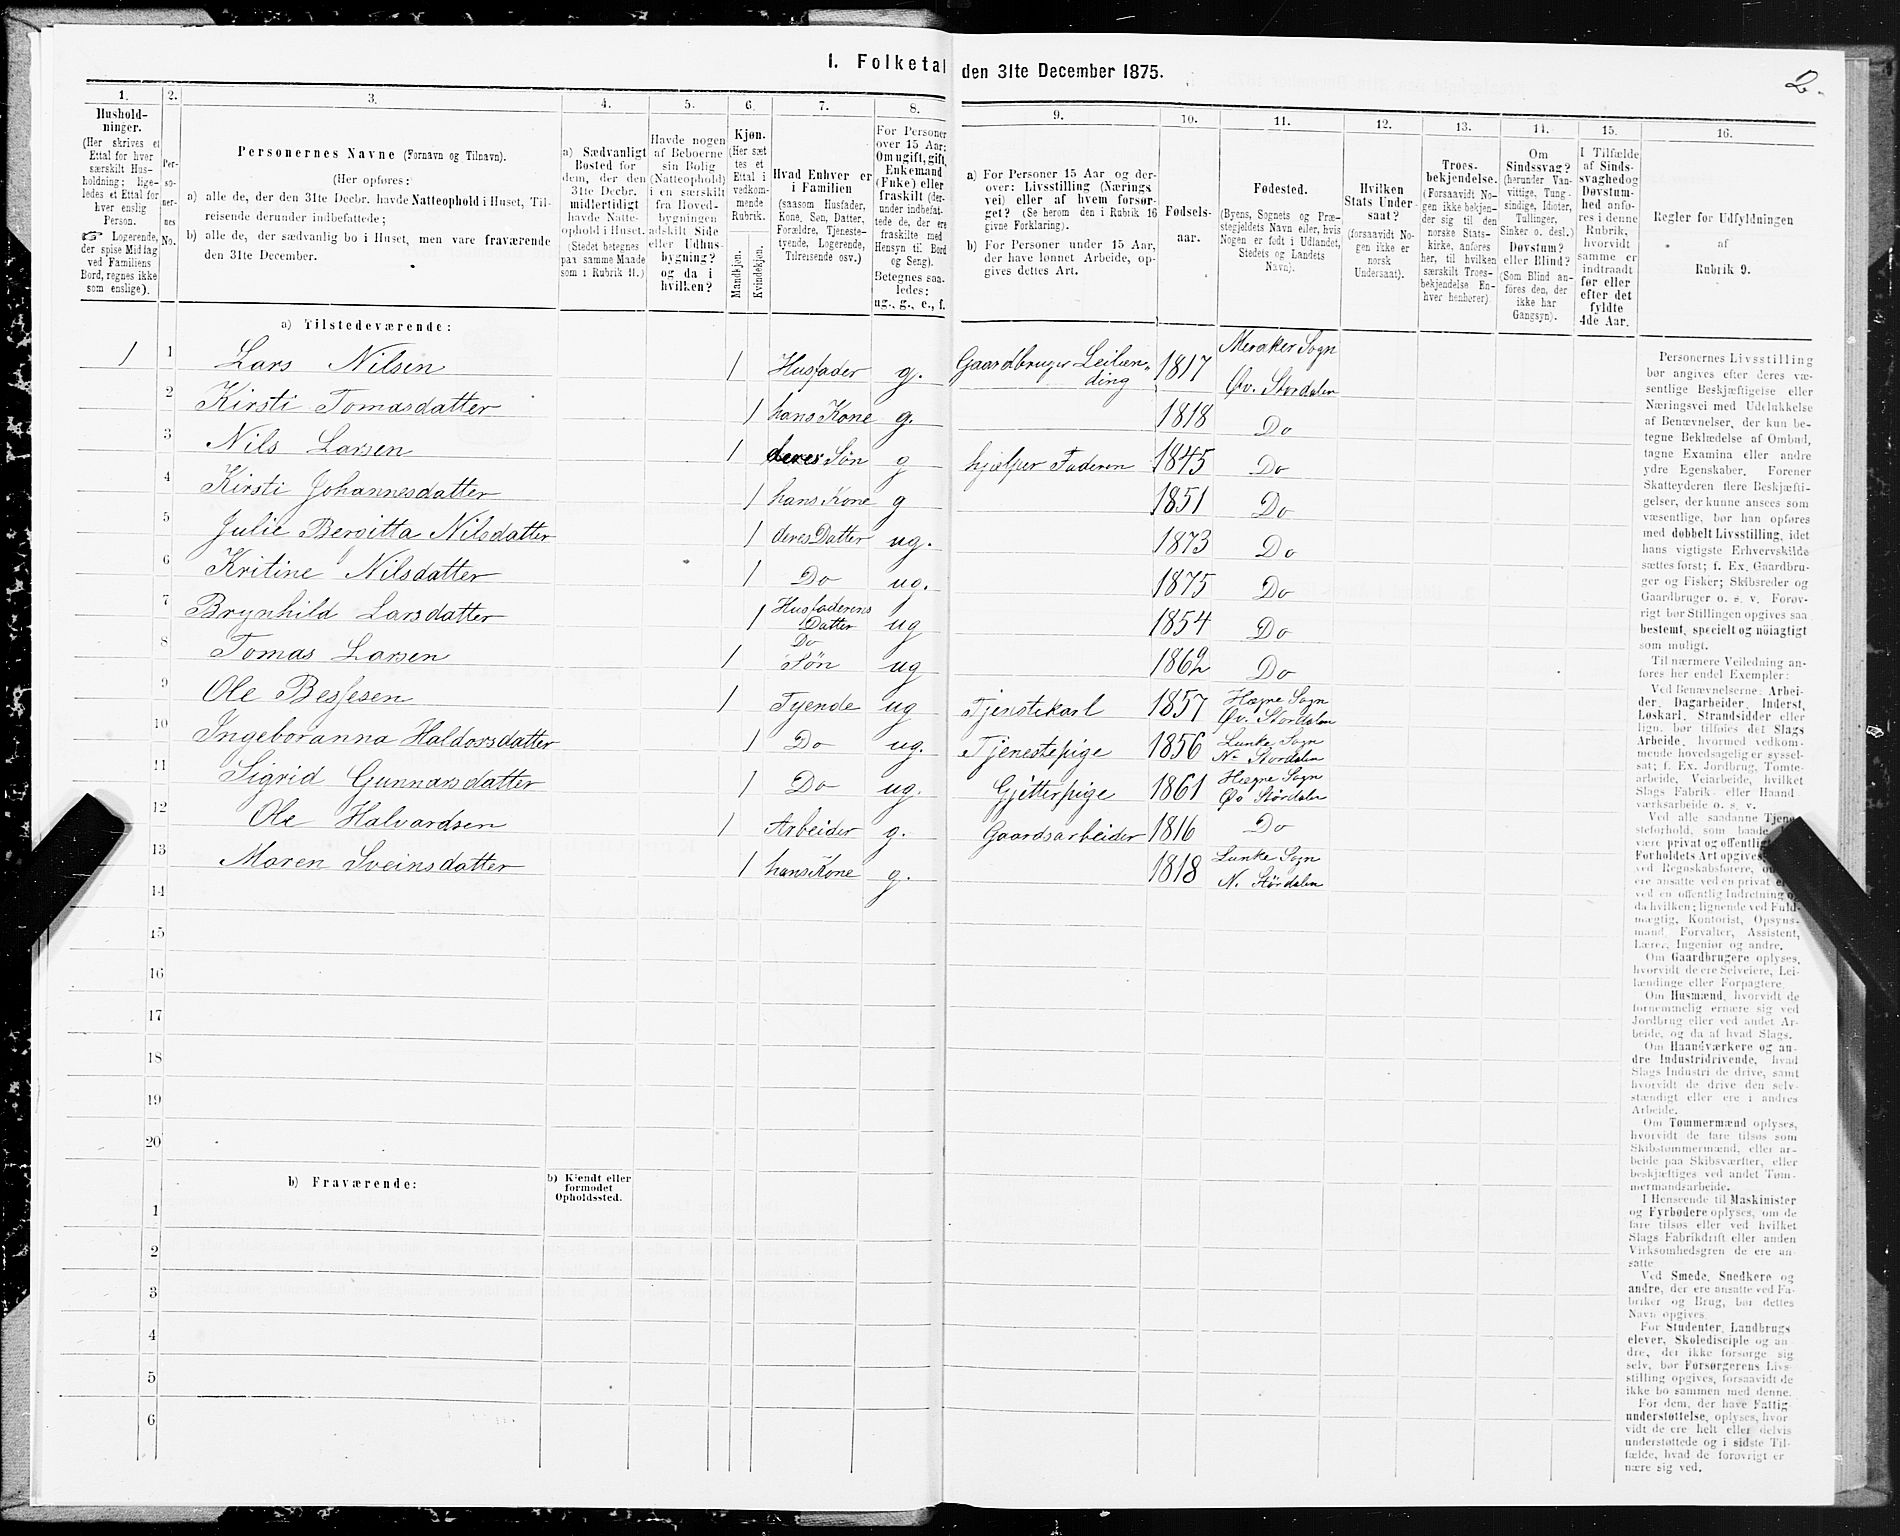 2.
I. Folketal den 31te December 1875.
1. 2. 3. 4. 5. 6. 7. 8. 9. 10. 11. 12. 13. 14. 15. 16.
Hushold-
ninger.
(Her skrives et
Ettal for hver
særskilt Hus-
holdning; lige-
ledes et Ettal for
hver enslig
Person.
☞ Logerende,
der spise Middag
ved Familiens
Bord, regnes ikke
som enslige).
Per-
so-
ner-
nes
No.
Personernes Navne (Fornavn og Tilnavn).
(Her opføres:
a) alle de, der den 31te Decbr. havde Natteophold i Huset, Til-
reisende derunder indbefattede;
b) alle de, der sædvanlig bo i Huset, men vare fraværende
den 31te December.
a) Sædvanligt
Bosted for
dem, der den
31te Decbr.
midlertidigt
havde Natte-
ophold i Huset.
(Stedet betegnes
paa samme Maade
som i Rubrik 11.)
Havde nogen
af Beboerne
sin Bolig
(Natteophold)
i en særskilt
fra Hoved-
bygningen
adskilt Side
eller Udhus-
bygning?
og da i
hvilken?
Kjøn.
(Her sæt
tes et
Ettal i
vedkom-
mende
Rubrik.
Mandkjøn.
Kvindekjøn.
Hvad Enhver er
i Familien
(saasom Husfader,
Kone, Søn, Datter,
Forældre, Tjeneste-
tyende, Logerende,
Tilreisende osv.)
For Personer
over 15 Aar:
Om ugift, gift,
Enkemand
(Enke) eller
fraskilt (der-
under indbefat-
tede de, der ere
fraskilte med
Hensyn til Bord
og Seng).
Betegnes saa-
ledes:
ug., g., e., f.
a) For Personer 15 Aar og der-
over: Livsstilling (Nærings
vei) eller af hvem forsør-
get? (Se herom den i Rubrik 16
givne Forklaring).
b) For Personer under 15 Aar,
der have lønnet Arbeide, op-
gives dettes Art.
Fødsels-
aar.
Fødested.
(Byens, Sognets og Præ-
stegjeldets Navn eller, hvis
Nogen er født i Udlandet,
Stedets og Landets
Navn).
Hvilken
Stats Under
saat?
(forsaavidt No-
gen ikke er
norsk
Undersaat).
Troes-
bekjendelse.
(Forsaavidt No-
gen ikke bekjen-
der sig til den
norske Stats-
kirke, anføres
her, til hvilken
særskilt Troes-
bekjendelse En-
hver henhører).
Om
Sindssvag?
(herunder Van-
vittige, Tung-
sindige, Idioter,
Tullinger,
Sinker o. desl.)
Døvstum?
eller Blind?
(Som Blind an-
føres den, der
ikke har
Gangsyn).
I Tilfælde
af Sinds-
svaghed og
Døvstum-
hed anfø-
res i denne
Rubrik,
hvorvidt
samme er
indtraadt
før eller
efter det
fyldte
4de Aar.
Regler for Udfyldningen
af
Rubrik 9.
a) Tilstedeværende:
1 1 Lars Nilsen 1 Husfader g. Gaardbruger Leilæn-ding 1817 Meraker Sogn Øv. Stordalen
2 Kirsti Tomasdatter 1 hans Kone g. 1818 Do
3 Nils Larsen 1 deres Søn g hjælper Faderen 1845 Do
4 Kirsti Johannesdatter 1 hans Kone g 1851 Do
5 Julie Bergitta Nilsdatter 1 deres Datter ug. 1873 Do
6 Kritine Nilsdatter 1 Do ug. 1875 Do
7 Brynhild Larsdatter 1 Husfaderens Datter ug 1854 Do
8 Tomas Larsen 1 Do Søn ug 1862 Do
9 Ole 1 Tyende ug Tjenstekarl 1857 Hegne Sogn Øv. Stordalen
10 Ingeboranna Haldorsdatter 1 Do ug. Tjenestepige 1856 Lunke Sogn N. Stordalen
11 Sigrid Gunnarsdatter 1 Do ug. Gjetterpige 1861 Hegne Sogn Øv Stördalen
12 Ole Halvardsen 1 Arbeider g. Gaardsarbeider 1816 Do
13 Maren Sveinsdatter 1 hans Kone g. 1818 Lunke Sogn N. Stördalen
14
15
16
17
18
19
20
b) Fraværende:
b) Kjendt eller
formodet
Opholdssted.
1
2
3
4
5
6
Personernes Livsstilling
bør angives efter deres væ-
sentlige Beskjæftigelse eller
Næringsvei med Udelukkelse
af Benævnelser, der kun be-
tegne Beklædelse af Ombud,
tagne Examina eller andre
ydre Egenskaber. Forener
Skatteyderen flere Beskjæfti-
gelser, der kunne ansees som
væsentlige, bør han opføres
med dobbelt Livsstilling, idet
hans vigtigste Erhvervskilde
sættes først; f. Ex. Gaardbru-
ger og Fisker; Skibsreder og
Gaardbruger o. s. v. Forøv-
rigt bør Stillingen opgives saa
bestemt, specielt og nöiagtigt
som muligt.
Til nærmere Veiledning an-
føres her endel Exempler:
Ved Benævnelserne: Arbei-
der, Dagarbeider, Inderst,
Løskarl, Strandsidder eller
lign. bør tilføies det Slags
Arbeide, hvormed vedkom-
mende hovedsagelig er syssel-
sat; f. Ex. Jordbrug, Tomte-
arbeide, Veiarbeide, hvilket
Slags Fabrik- eller Haand
værksarbeide o. s. v.
Ved alle saadanne Tjene
steforhold, som baade
være privat og offentlig
Forholdets Art opgives,
ved Regnskabsførere,
ere ansatte ved en privat
ved en offentlig Indretning
da hvilken; lignende ved Fuld-
mægtig, Kontorist, Opsyns-
mand, Forvalter, Assistent,
Lærer, Ingeniør og andre.
Om Gaardbrugere oplyses,
hvorvidt de ere Selveiere, Lei-
lændinge eller Forpagtere
Om Husmænd, hvorvidt de
fornemmelig ernære sig ved
Jordbrug eller ved andet Ar-
beide, og da af hvad Slags.
Om Haandværkere og an-
dre Industridrivende, hvad
Slags Industri de drive, samt
hvorvidt de drive den selv-
stændigt eller ere i andres
Arbeide.
Om Tømmermænd oplyses,
hvorvidt de fare tilsøs som
Skibstømmermænd, eller ar-
beide paa Skibsværfter, eller
beskjæftiges ved andet Tøm-
mermandsarbeide.
I Henseende til Maskinister
og Fyrbødere oplyses, om de
fare tilsøs eller ved hvilket
Slags Fabrikdrift eller anden
Virksomhedsgren de ere an-
satte
Ved Smede, Snedkere og
andre, der ere ansatte ved Fa-
briker og Brug, bør dettes
Navn opgives
For Studenter, Landbrugs
elever, Skoledisciple og an-
dre, der ikke forsørge sig
selv, bør Forsørgerens Livs-
stilling opgives, forsaavidt de
ikke bo sammen med denne.
For dem, der have Fattig
understøttelse, oplyses, hvor
vidt de ere helt eller delvis
understøttede og i sidste Til-
fælde, hvad de forøvrigt er
nære sig ved.